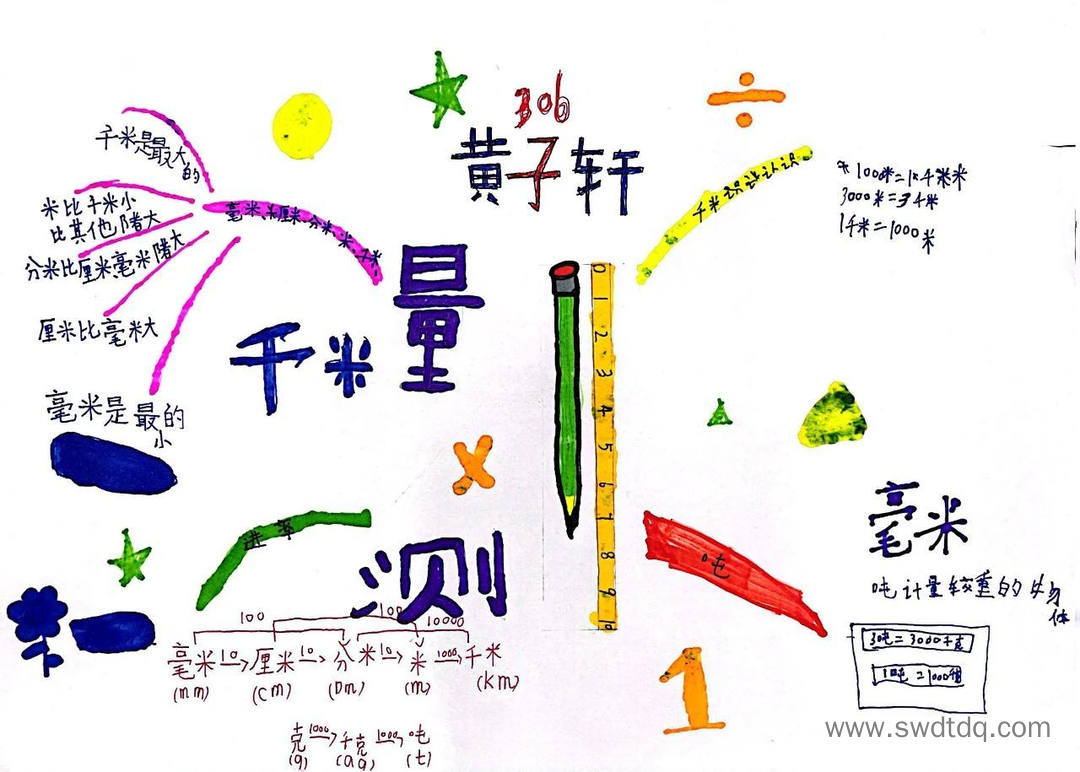 306
黄子轩
千米是最大的
米比千米小
比其他陼大
分米比厘米毫米陼大
厘米比毫米大
毫米是最小的
毫米、厘米、分米、米、千米
千米
量
测
千米
1000米=1千米
3000米=3千米
1千米=1000米
0 1 2 3 4 5 6 7 8 9 10
进率
100
100
10000
毫米 10 厘米 10 分米 10 米 1000 千米
(mm) (cm) (Dm) (m) (km)
克 1000 千克 1000 吨
(g) (t)
吨
毫米
吨计量较重的
体
3吨=3000千克
1吨=1000
1
www.swdtdq.com